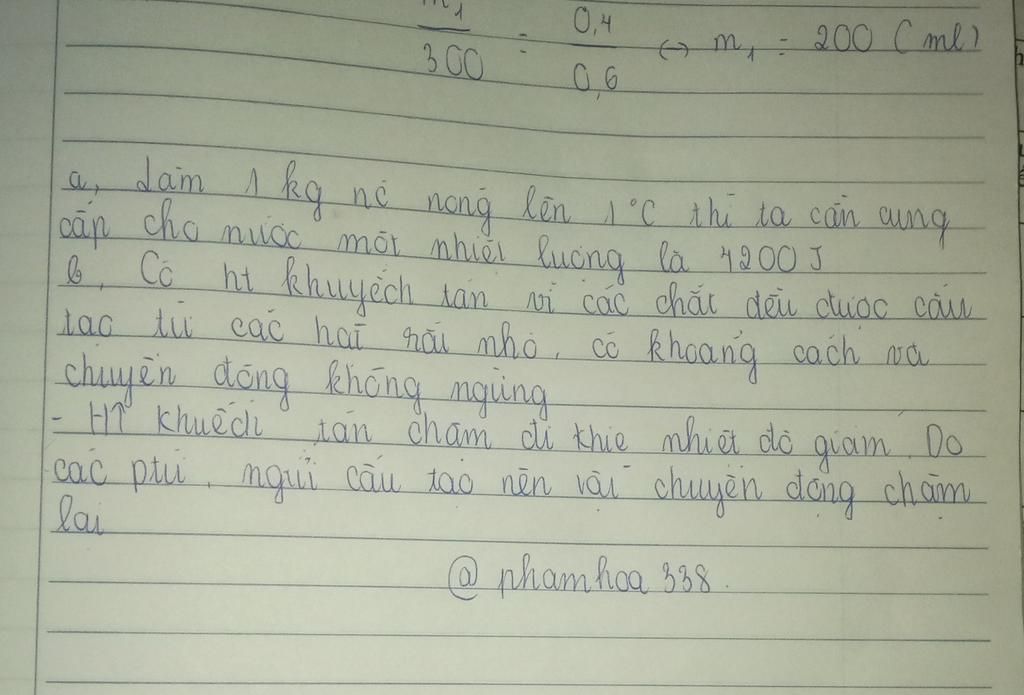 m₁/300 = 0,4/0,6 ↔ m₁ = 200 (ml)
a, Làm 1 kg nc nóng lên 1°C thì ta cần cung
cấp cho nước một nhiệt lượng là 4200J
b, Có ht khuyếch tán vì các chất đều được cấu
tạo từ các hạt rất nhỏ, có khoảng cách và
chuyển động không ngừng
- HT khuếch tán chậm đi khi nhiệt độ giảm. Do
các ptử, ngtử cấu tạo nên vật chuyển động chậm
lại
@phamhoa338.